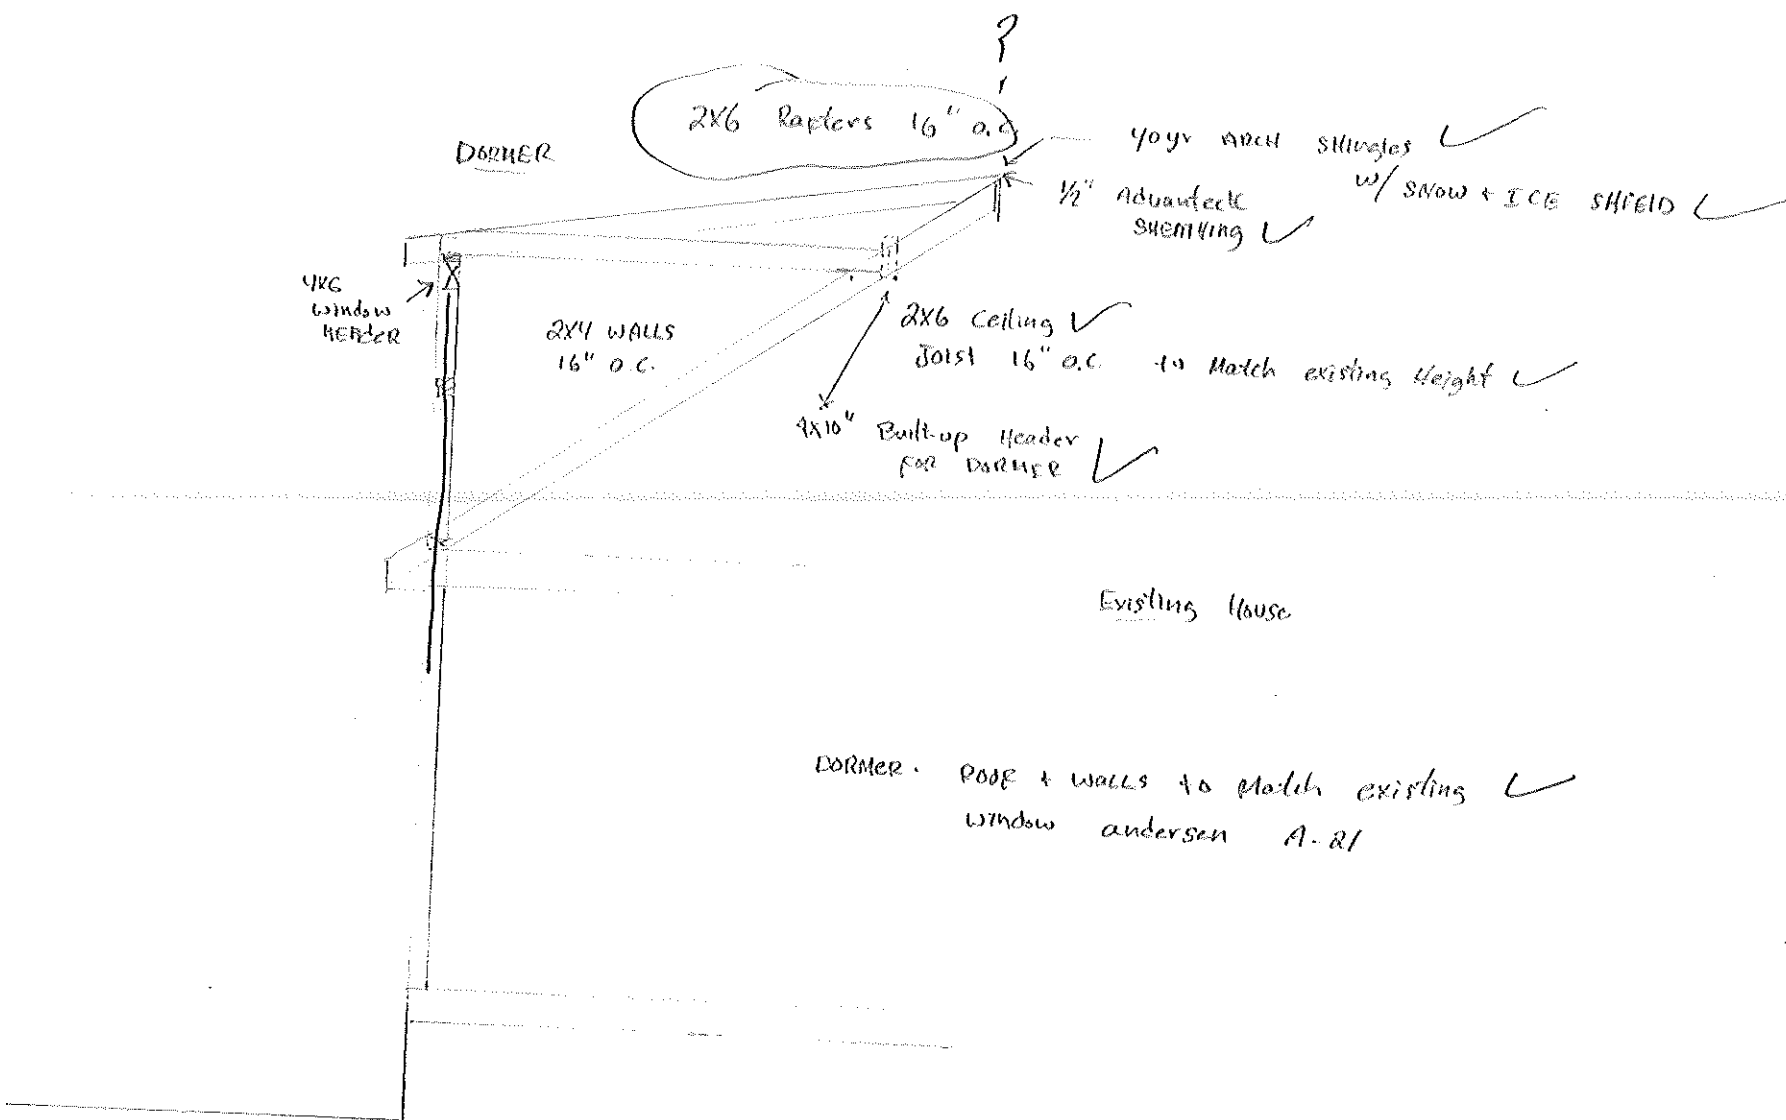 ?
2X6 Rapters 16" o.c.
DORMER
40yr ARCH SHingles
W/ SNOW + ICE SHIELD
1/2" Advanteck
SHEATHing
4X6
Window
HEADER
2X4 WALLS
16" O.C.
2X6 Ceiling
Joist 16" o.c. to Match existing Height
4X10" Built-up Header
FOR DORMER
Existing House
DORMER. ROOF + WALLS to Match existing
Window andersen A-21